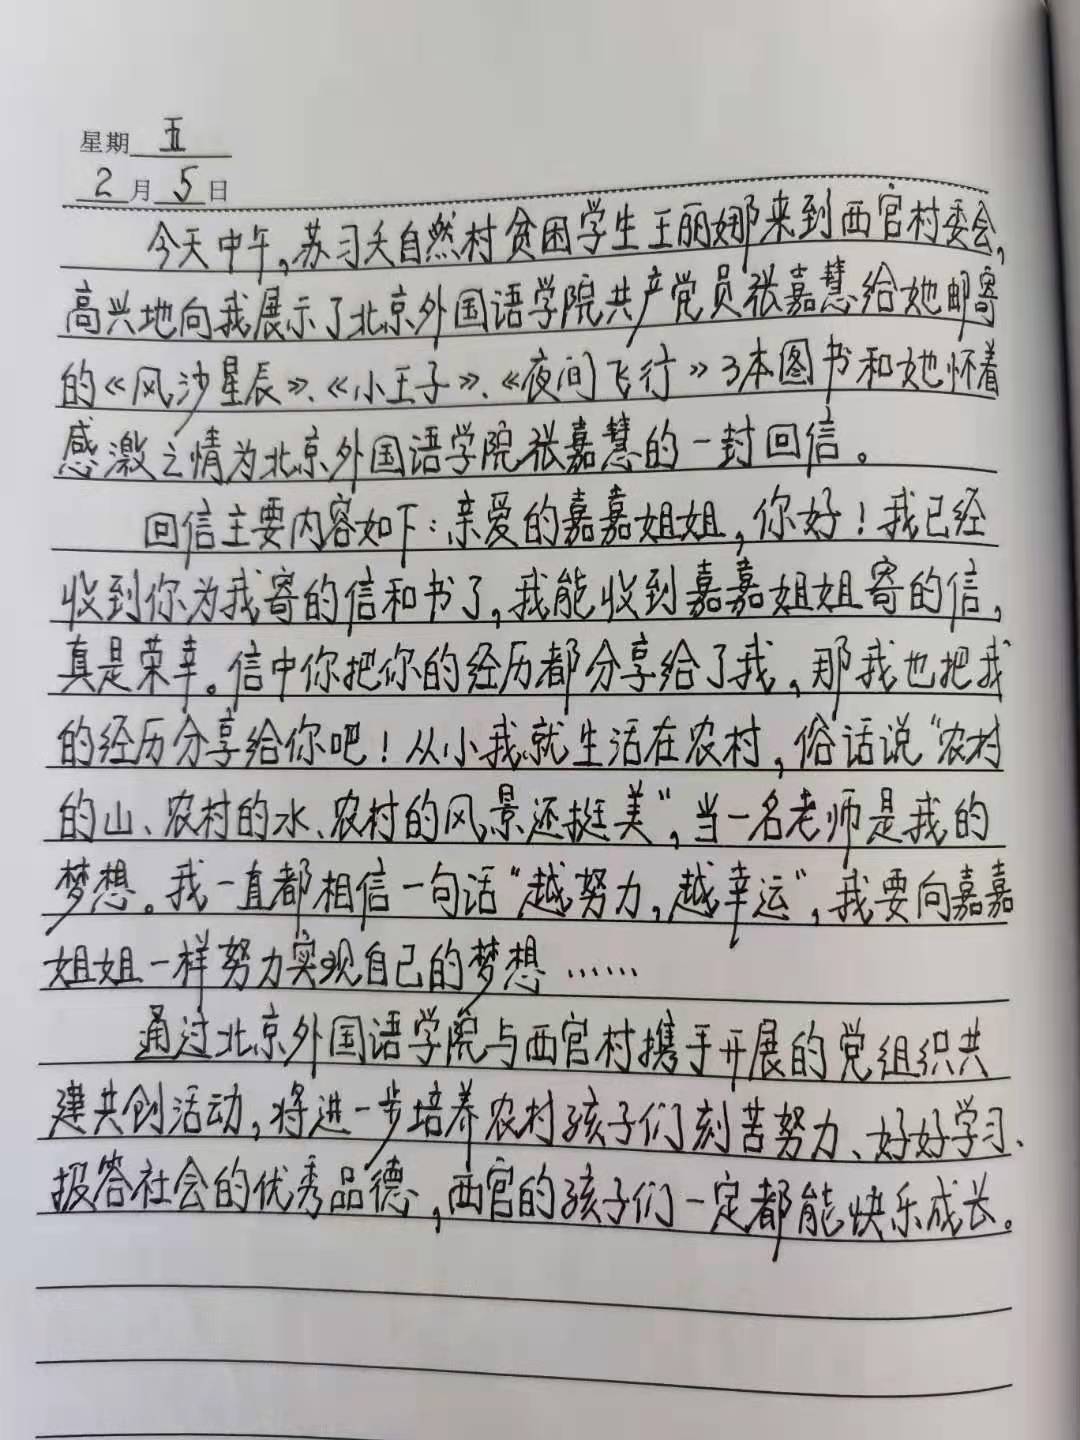 星期 五
2月5日
今天中午，苏习夭自然村贫困学生王丽娜来到西官村委会，
高兴地向我展示了北京外国语学院共产党员张嘉慧给她邮寄
的《风沙星辰》、《小王子》、《夜间飞行》3本图书和她怀着
感激之情为北京外国语学院张嘉慧的一封回信。
回信主要内容如下：亲爱的嘉嘉姐姐，你好！我已经
收到你为我寄的信和书了，我能收到嘉嘉姐姐寄的信，
真是荣幸。信中你把你的经历都分享给了我，那我也把我
的经历分享给你吧！从小我就生活在农村，俗话说“农村
的山、农村的水、农村的风景还挺美”，当一名老师是我的
梦想。我一直都相信一句话“越努力，越幸运”，我要向嘉嘉
姐姐一样努力实现自己的梦想……
通过北京外国语学院与西官村携手开展的党组织共
建共创活动，将进一步培养农村孩子们刻苦努力、好好学习、
报答社会的优秀品德，西官的孩子们一定都能快乐成长。